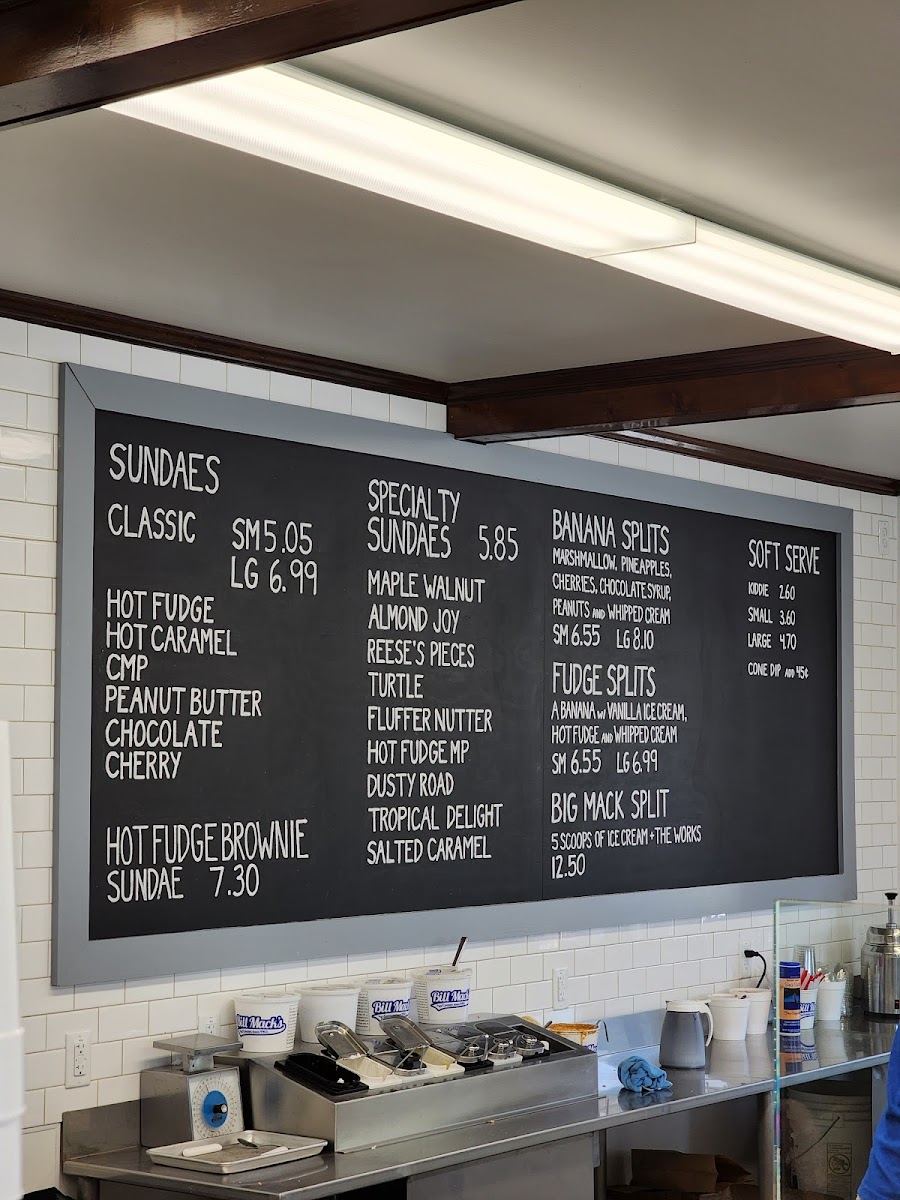 SUNDAES
CLASSIC SM 5.05
LG 6.99
HOT FUDGE
HOT CARAMEL
CMP
PEANUT BUTTER
CHOCOLATE
CHERRY
HOT FUDGE BROWNIE
SUNDAE 7.30
SPECIALTY
SUNDAES 5.85
MAPLE WALNUT
ALMOND JOY
REESE'S PIECES
TURTLE
FLUFFER NUTTER
HOT FUDGE MP
DUSTY ROAD
TROPICAL DELIGHT
SALTED CARAMEL
BANANA SPLITS
MARSHMALLOW, PINEAPPLES,
CHERRIES, CHOCOLATE SYRUP,
PEANUTS AND WHIPPED CREAM
SM 6.55 LG 8.10
FUDGE SPLITS
A BANANA W/ VANILLA ICE CREAM,
HOT FUDGE AND WHIPPED CREAM
SM 6.55 LG 6.99
BIG MACK SPLIT
5 SCOOPS OF ICE CREAM + THE WORKS
12.50
SOFT SERVE
KIDDIE 2.60
SMALL 3.60
LARGE 4.70
CONE DIP ADD 45¢
Bill Mack's
Bill Mack's
Bill Mack's